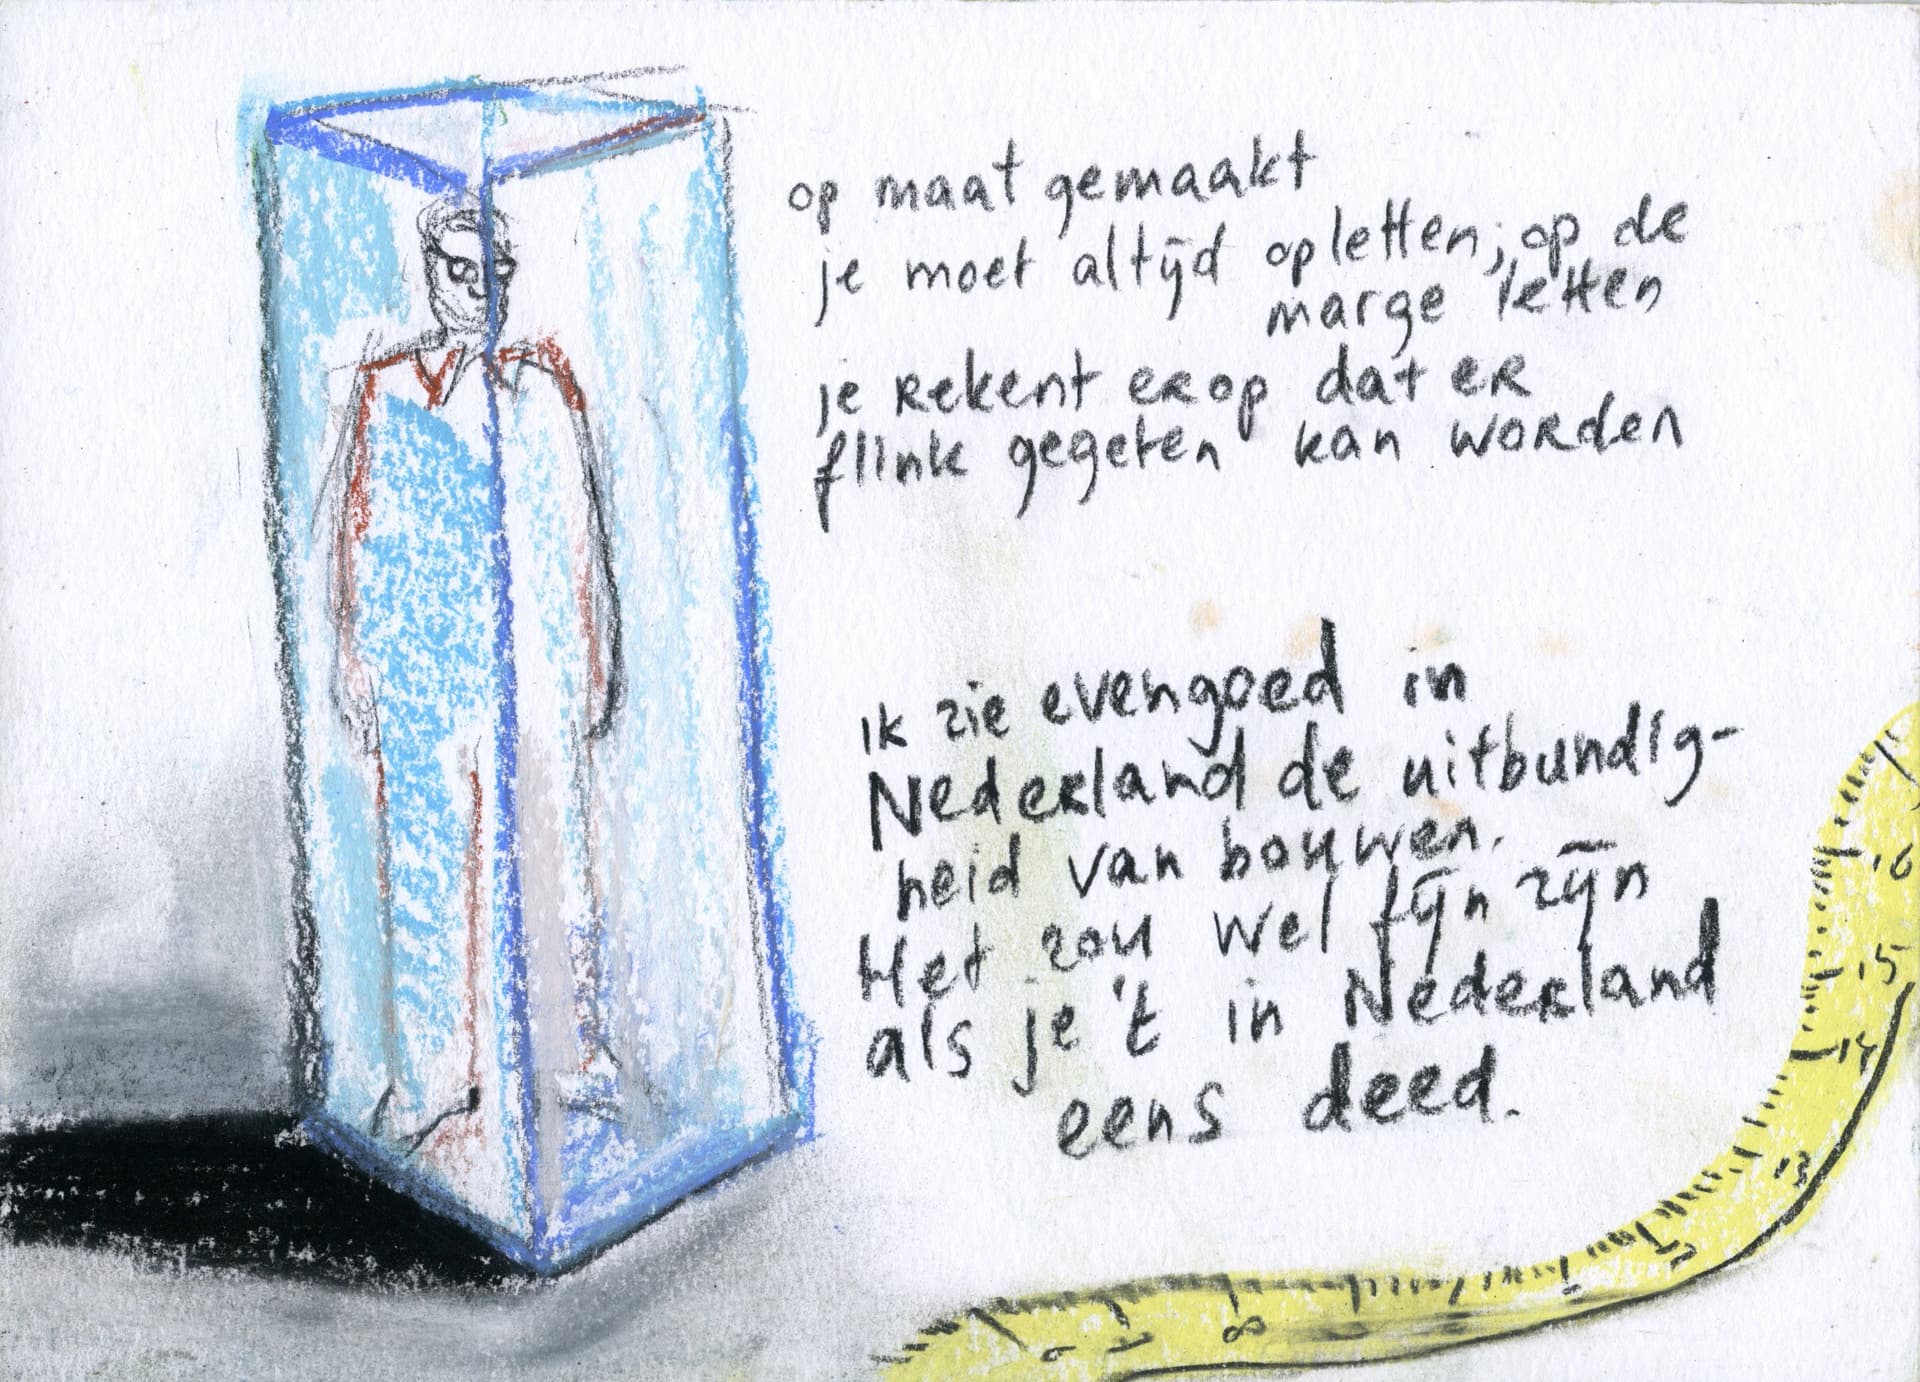 op maat gemaakt
je moet altijd opletten; op de
marge letten
je rekent erop dat er
flink gegeten kan worden
ik zie evengoed in
Nederland de uitbundig-
heid van bouwen.
Het zou wel fijn zijn
als je 't in Nederland
eens deed.
16
15
14
13
8